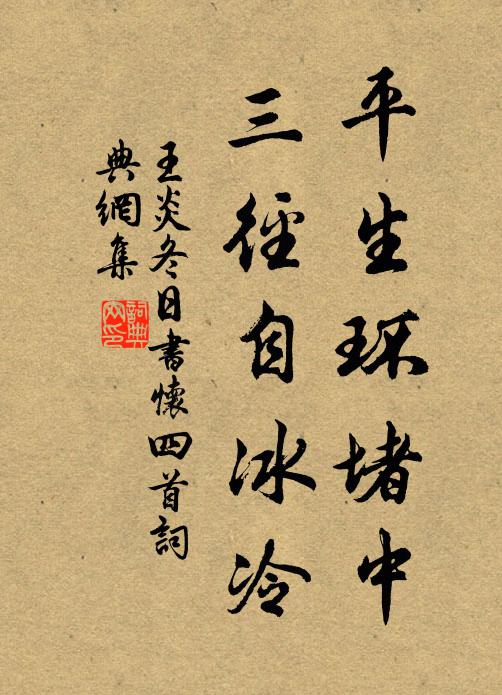 平生环堵中
三徑自冰冷
王炎冬日書懷四首詞
典網集
詞典
网印